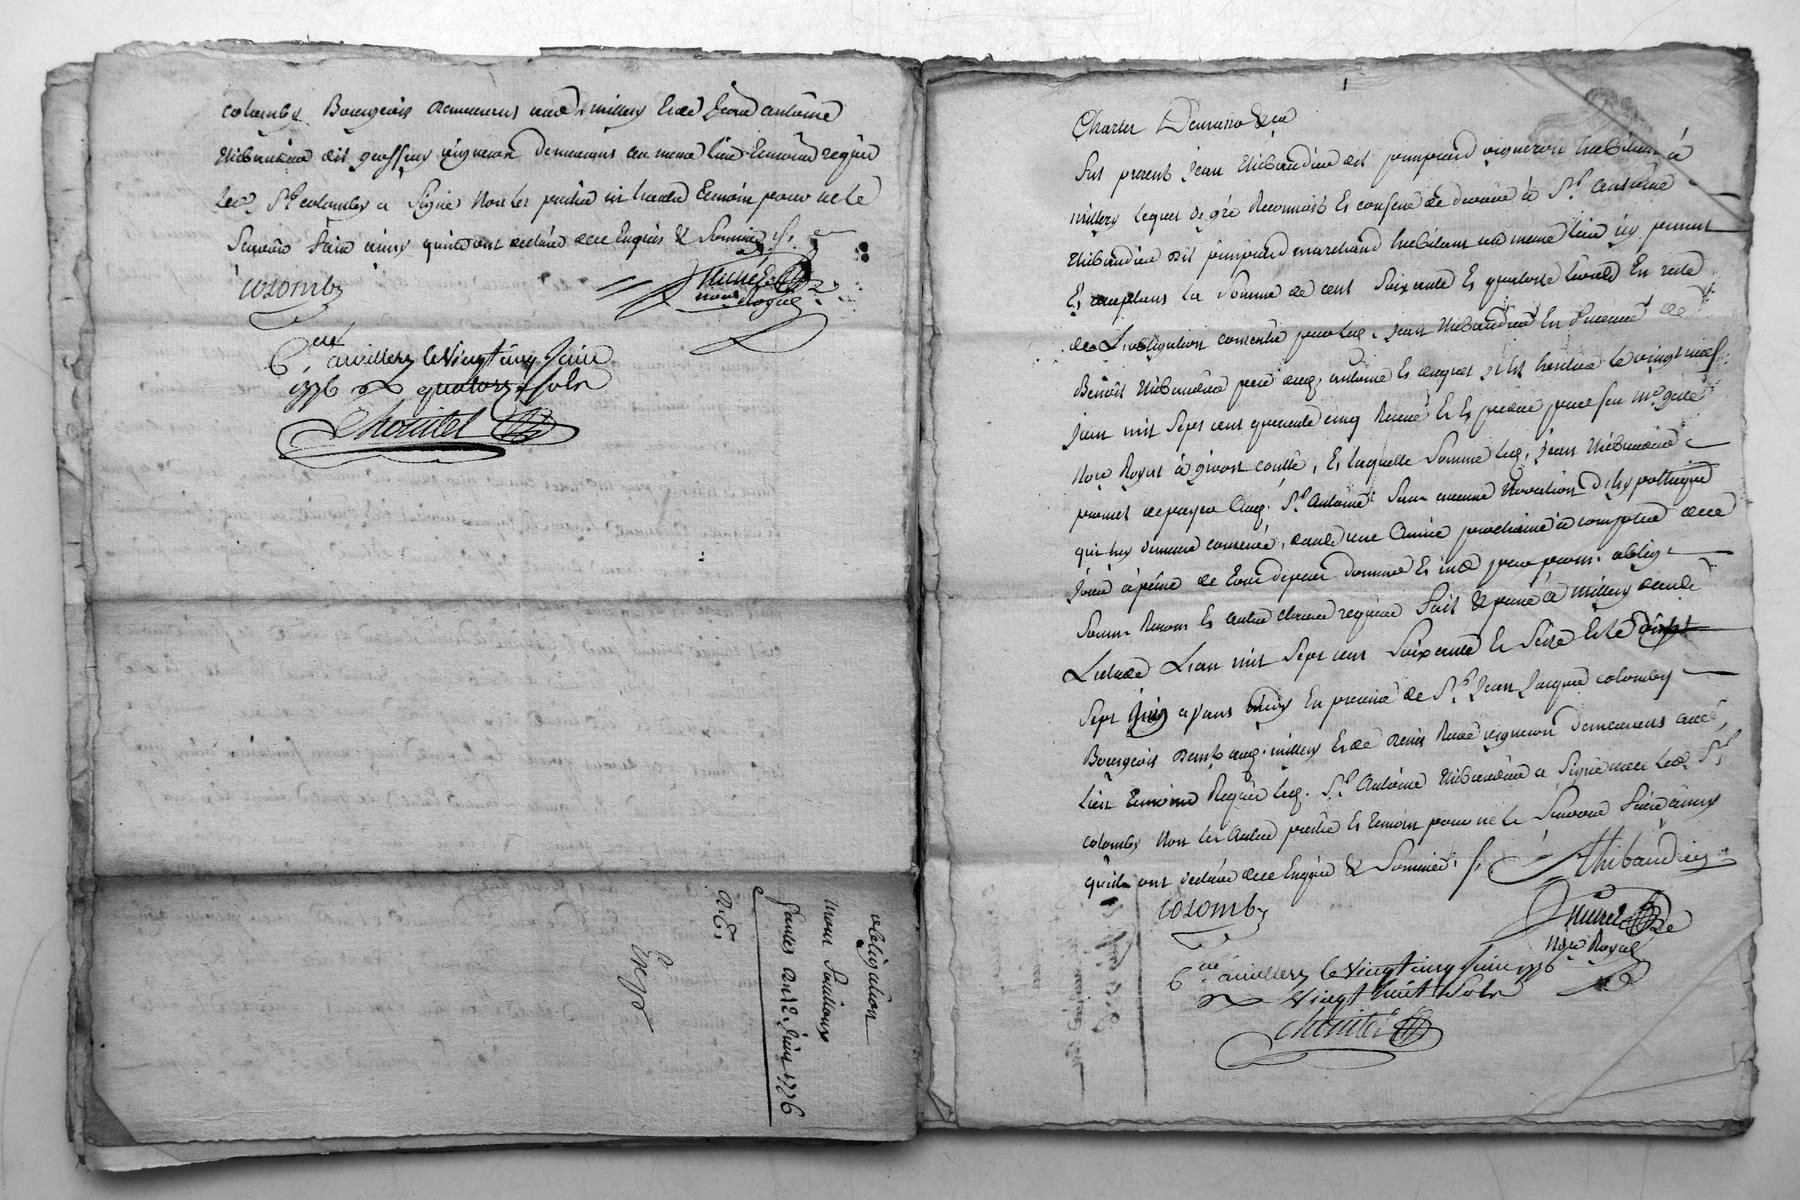 colomby Bourgeois demeurant aud. millery et de jean antoine
thibaudier dit geoffray vigneron demeurant au meme lieu temoins requis
led. Sr. colomby a signé non les parties ni l'autre temoin pour ne le
scavoir faire ainsy quils ont declaré de ce enquis & sommés
colomby
nore Royal
Cllé a millery le vingt cinq juin
1776 quatorze sols
obligation
mont
juin 1776
Exep
Sut present jean thibaudier dit vigneron habitant à
millery lequel de gré reconnoit et confesse de devoir à Sr. antoine
thibaudier dit marchand habitant au meme lieu icy present
et acceptant la somme de cent soixante et quatorze livres en reste
de l'obligation consentie par led. jean thibaudier en faveur de
Benoit thibaudier pere dud. antoine et duquel il est heritier le vingt neuf
juin mil sept cent quarente cinq receue et expediée par feu me.
nore Royal à givors conllé, et laquelle somme led. jean thibaudier
promet de payer aud. Sr. antoine sans aucune novation d'hypotheque
qui luy demeure conservée, dans une année prochaine à compter de ce
jour à peine de tous depens dommages et int. pour prom. oblig.
soum. renon. et autres clauses requises fait & passé à millery
L'etude L'an mil sept cent soixante et seize et le
sept juin avant midy en presence de Sr. jean jacques colomby
Bourgeois demt. aud. millery et de denis vigneron demeurant aud.
lieu temoins requis led. Sr. antoine thibaudier a signé avec led. Sr.
colomby non les autres parties et temoin pour ne le scavoir faire ainsy
quils ont declaré de ce enquis & sommés
Athibaudier
colomby
nore Royal
Cllé a millery le vingt cinq juin 1776
vingt huit sols